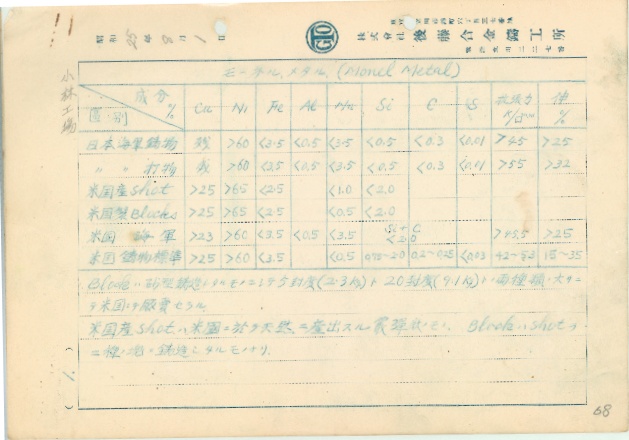 昭和25年8月1日
株式會社 後藤合金鑄工所
小林工場
モーネル.メタル. (Monel Metal)
成分 % 区別 Cu Ni Fe Al Mn Si C S 抗張力 K/mm 伸 %
日本海軍鋳物 残 >60 <3.5 <0.5 <3.5 <0.5 <0.3 <0.01 >45 >25
〃 〃 打物 残 >60 <3.5 <0.5 <3.5 <0.5 <0.3 <0.01 >55 >32
米国産Shot >25 >65 <2.5 <1.0 <2.0
米国製Blocks >25 >65 <2.5 <0.5 <2.0
米国 海軍 >23 >60 <3.5 <0.5 <3.5 Si + C <2.0 >45.5 >25
米国鋳物標準 >25 >60 <3.5 <0.5 0.75-2.0 0.2-0.25 <0.03 42-53 15-35
Blockハ 鋳造シタルモノニシテ5封度(2.3Kg)ト20封度(9.1Kg)ノ両種類ノ大サニ
テ米国ニテ販賣セラル.
米国産Shotハ米国ニ於テ天然ニ産出スル 弾状ノモノ. BlockハShotヲ
鋳造シタルモノナリ.
(1.)
68